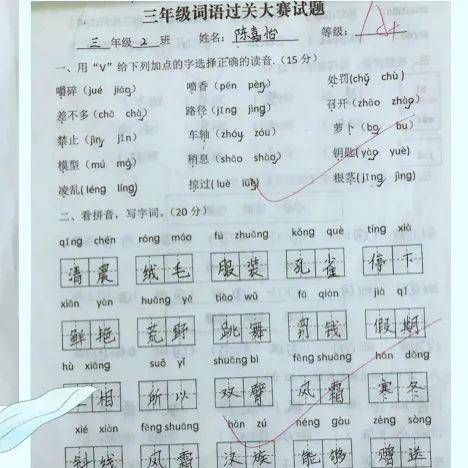 三年级词语过关大赛试题
三 年级 2 班 姓名：陈嘉怡 等级：A+
一、用“V”给下列加点的字选择正确的读音.(15分)
嚼碎（jué jiáo） 喷香（pēn pèn） 处罚(chǔ chù)
差不多(chā chà) 路径（jīng jìng） 召开(zhāo zhào)
禁止（jìn jīn） 车轴（zhóu zóu） 萝卜（bo bǔ）
模型（mú mó） 稍息（shāo shào） 钥匙(yào yuè)
凌乱(léng líng) 掠过(luè lüè) 根茎(jīng jìng)
二、看拼音，写字词。（20分）
qīng chén róng máo fú zhuāng kǒng què tíng xià
清晨 绒毛 服装 孔雀 停下
xiān yàn huāng yě tiào wǔ fá qián jià qī
鲜艳 荒野 跳舞 罚钱 假期
hù xiāng suǒ yǐ shuāng bì fēng shuāng hán dōng
相 所以 双臂 风霜 寒冬
xié xiàn fēng shuāng hàn zú néng gòu zèng sòng
斜线 风霜 汉族 能够 赠送